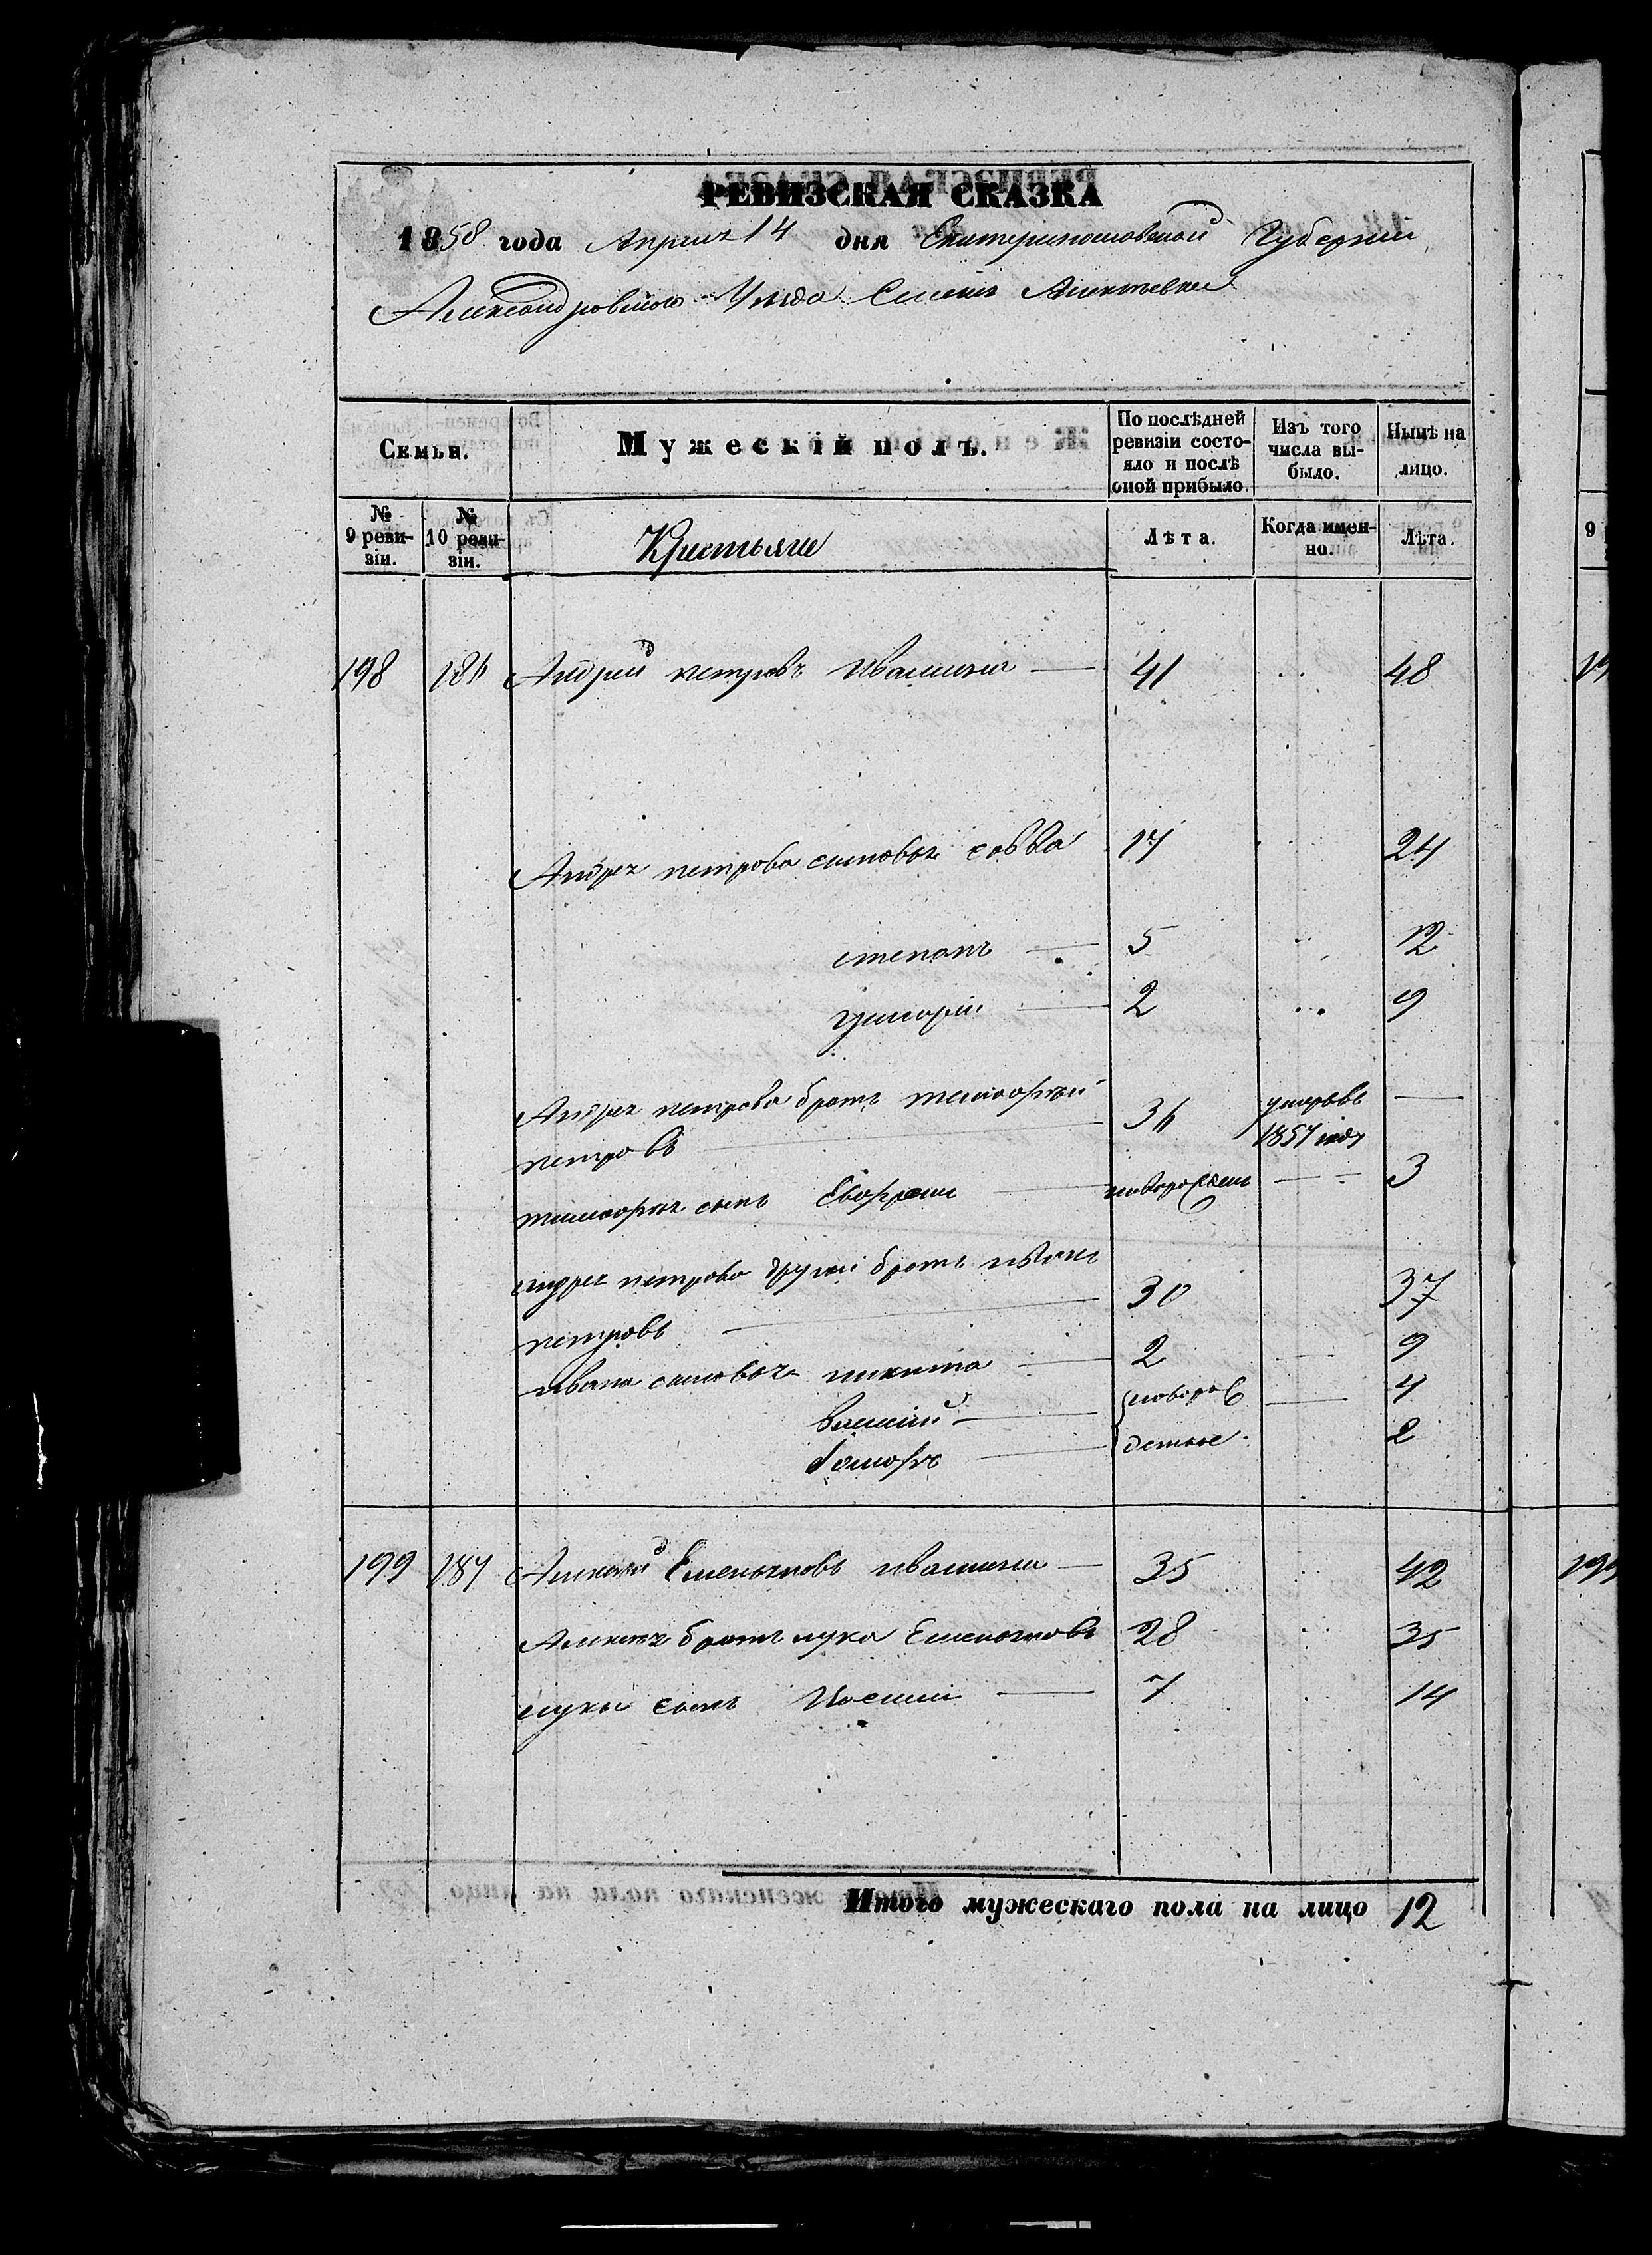 РЕВИЗСКАЯ СКАЗКА
1858 года Апреля 14 дня Екатеринославской Губернии
Александровского Уезда Селенія
Семьи.
Мужескій полъ.
По послѣдней ревизіи состояло и послѣ оной прибыло.
Изъ того числа выбыло.
Нынѣ на лицо.
№ 9 ревизіи.
№ 10 ревизіи.
Крестьяне
Лѣта.
Когда именно.
Лѣта.
198 186 Андрей петровъ Ивашина 41 48
Андрея петрова сыновья савва 17 24
степанъ 5 12
григорій 2 9
Андрея петрова братъ тимофѣй
петровъ 36 умеръ въ 1857 году
тимофѣя сынъ новорожден 3
андрея петрова другой братъ иванъ
петровъ 30 37
ивана сыновья никита 2 9
Василій новорож 4
денные 2
199 187 Алексѣй Емельяновъ Ивашина 35 42
Алексѣя братъ лука Емельяновъ 28 35
луки сынъ 7 14
Итого мужескаго пола на лицо 12